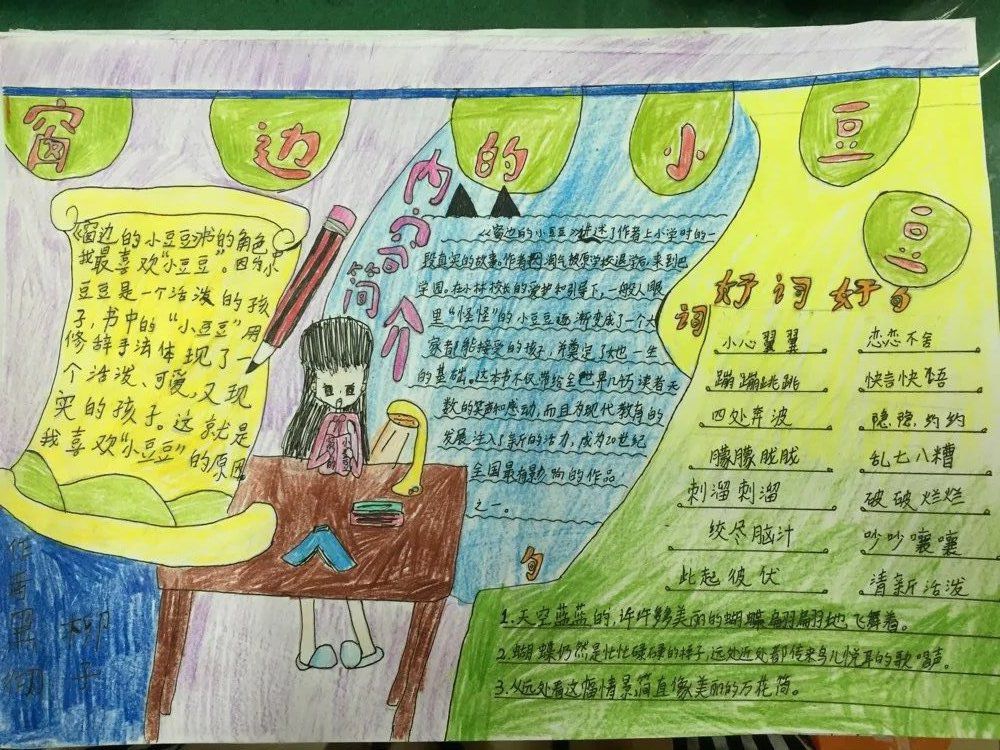 窗边的小豆豆
《窗边的小豆豆》书的角色
我最喜欢“小豆豆”。因为小
豆豆是一个活泼的孩
子，书中的“小豆豆”用
修辞手法体现了一
个活泼、可爱，又现
实的孩子。这就是
我喜欢“小豆豆”的原因。
内容简介
《窗边的小豆豆》讲述了作者上小学时的一
段真实的故事。作者因淘气被原学校退学后，来到巴
学园。在小林校长的爱护和引导下，一般人眼
里“怪怪”的小豆豆逐渐变成了一个大
家都能接受的孩子，并奠定了她一生
的基础。这本书不仅带给全世界几万读者无
数的笑声和感动，而且为现代教育的
发展注入了新的活力，成为20世纪
全国最有影响的作品
之一。
好词好句
词
小心翼翼 恋恋不舍
蹦蹦跳跳 快言快语
四处奔波 隐隐约约
朦朦胧胧 乱七八糟
刺溜刺溜 破破烂烂
绞尽脑汁 吵吵嚷嚷
此起彼伏 清新活泼
句
1.天空蓝蓝的，许许多多美丽的蝴蝶翩翩地飞舞着。
2.蝴蝶仍然是忙忙碌碌的样子，远处近处都传来鸟儿悦耳的歌唱声。
3.从远处看这幅情景简直像美丽的万花筒。